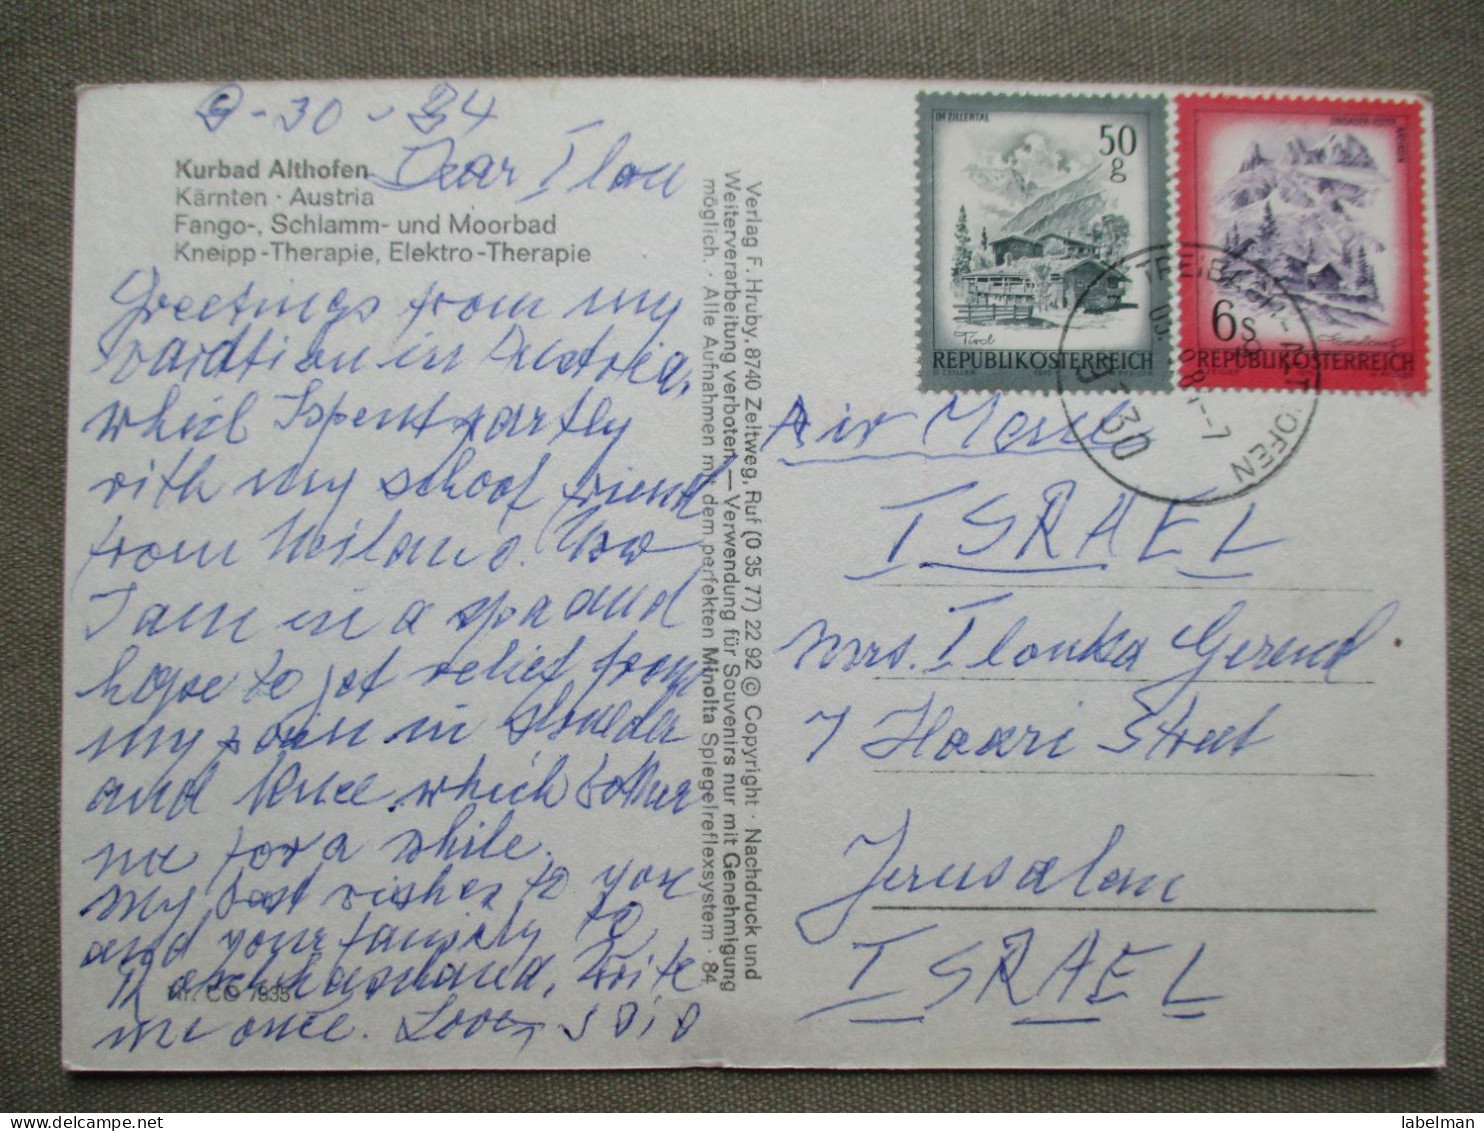 9-30-84
Dear Ilou
Kurbad Althofen
Kärnten · Austria
Fango-, Schlamm- und Moorbad
Kneipp-Therapie, Elektro-Therapie
Greetings from my
in Austria,
which I spent partly
with my school friend
from Milano. Now
I am in a spa and
hope to get relief from
my pain in
and knee which bother
me for a while.
My best wishes to you
and your family to
Write
me once. Love,
Nr. CG 7935
Verlag F. Hruby, 8740 Zeltweg, Ruf (0 35 77) 22 92 © Copyright · Nachdruck und
Weiterverarbeitung verboten — Verwendung für Souvenirs nur mit Genehmigung
möglich. · Alle Aufnahmen mit dem perfekten Minolta Spiegelreflexsystem · 84
IM ZILLERTAL
50
g
Tirol
REPUBLIK ÖSTERREICH
6 S
REPUBLIK ÖSTERREICH
TREIBACH-ALTHOFEN
9330
Air
ISRAEL
Mrs. Ilonka Gerend
7 Haari Street
Jerusalem
ISRAEL
labelman